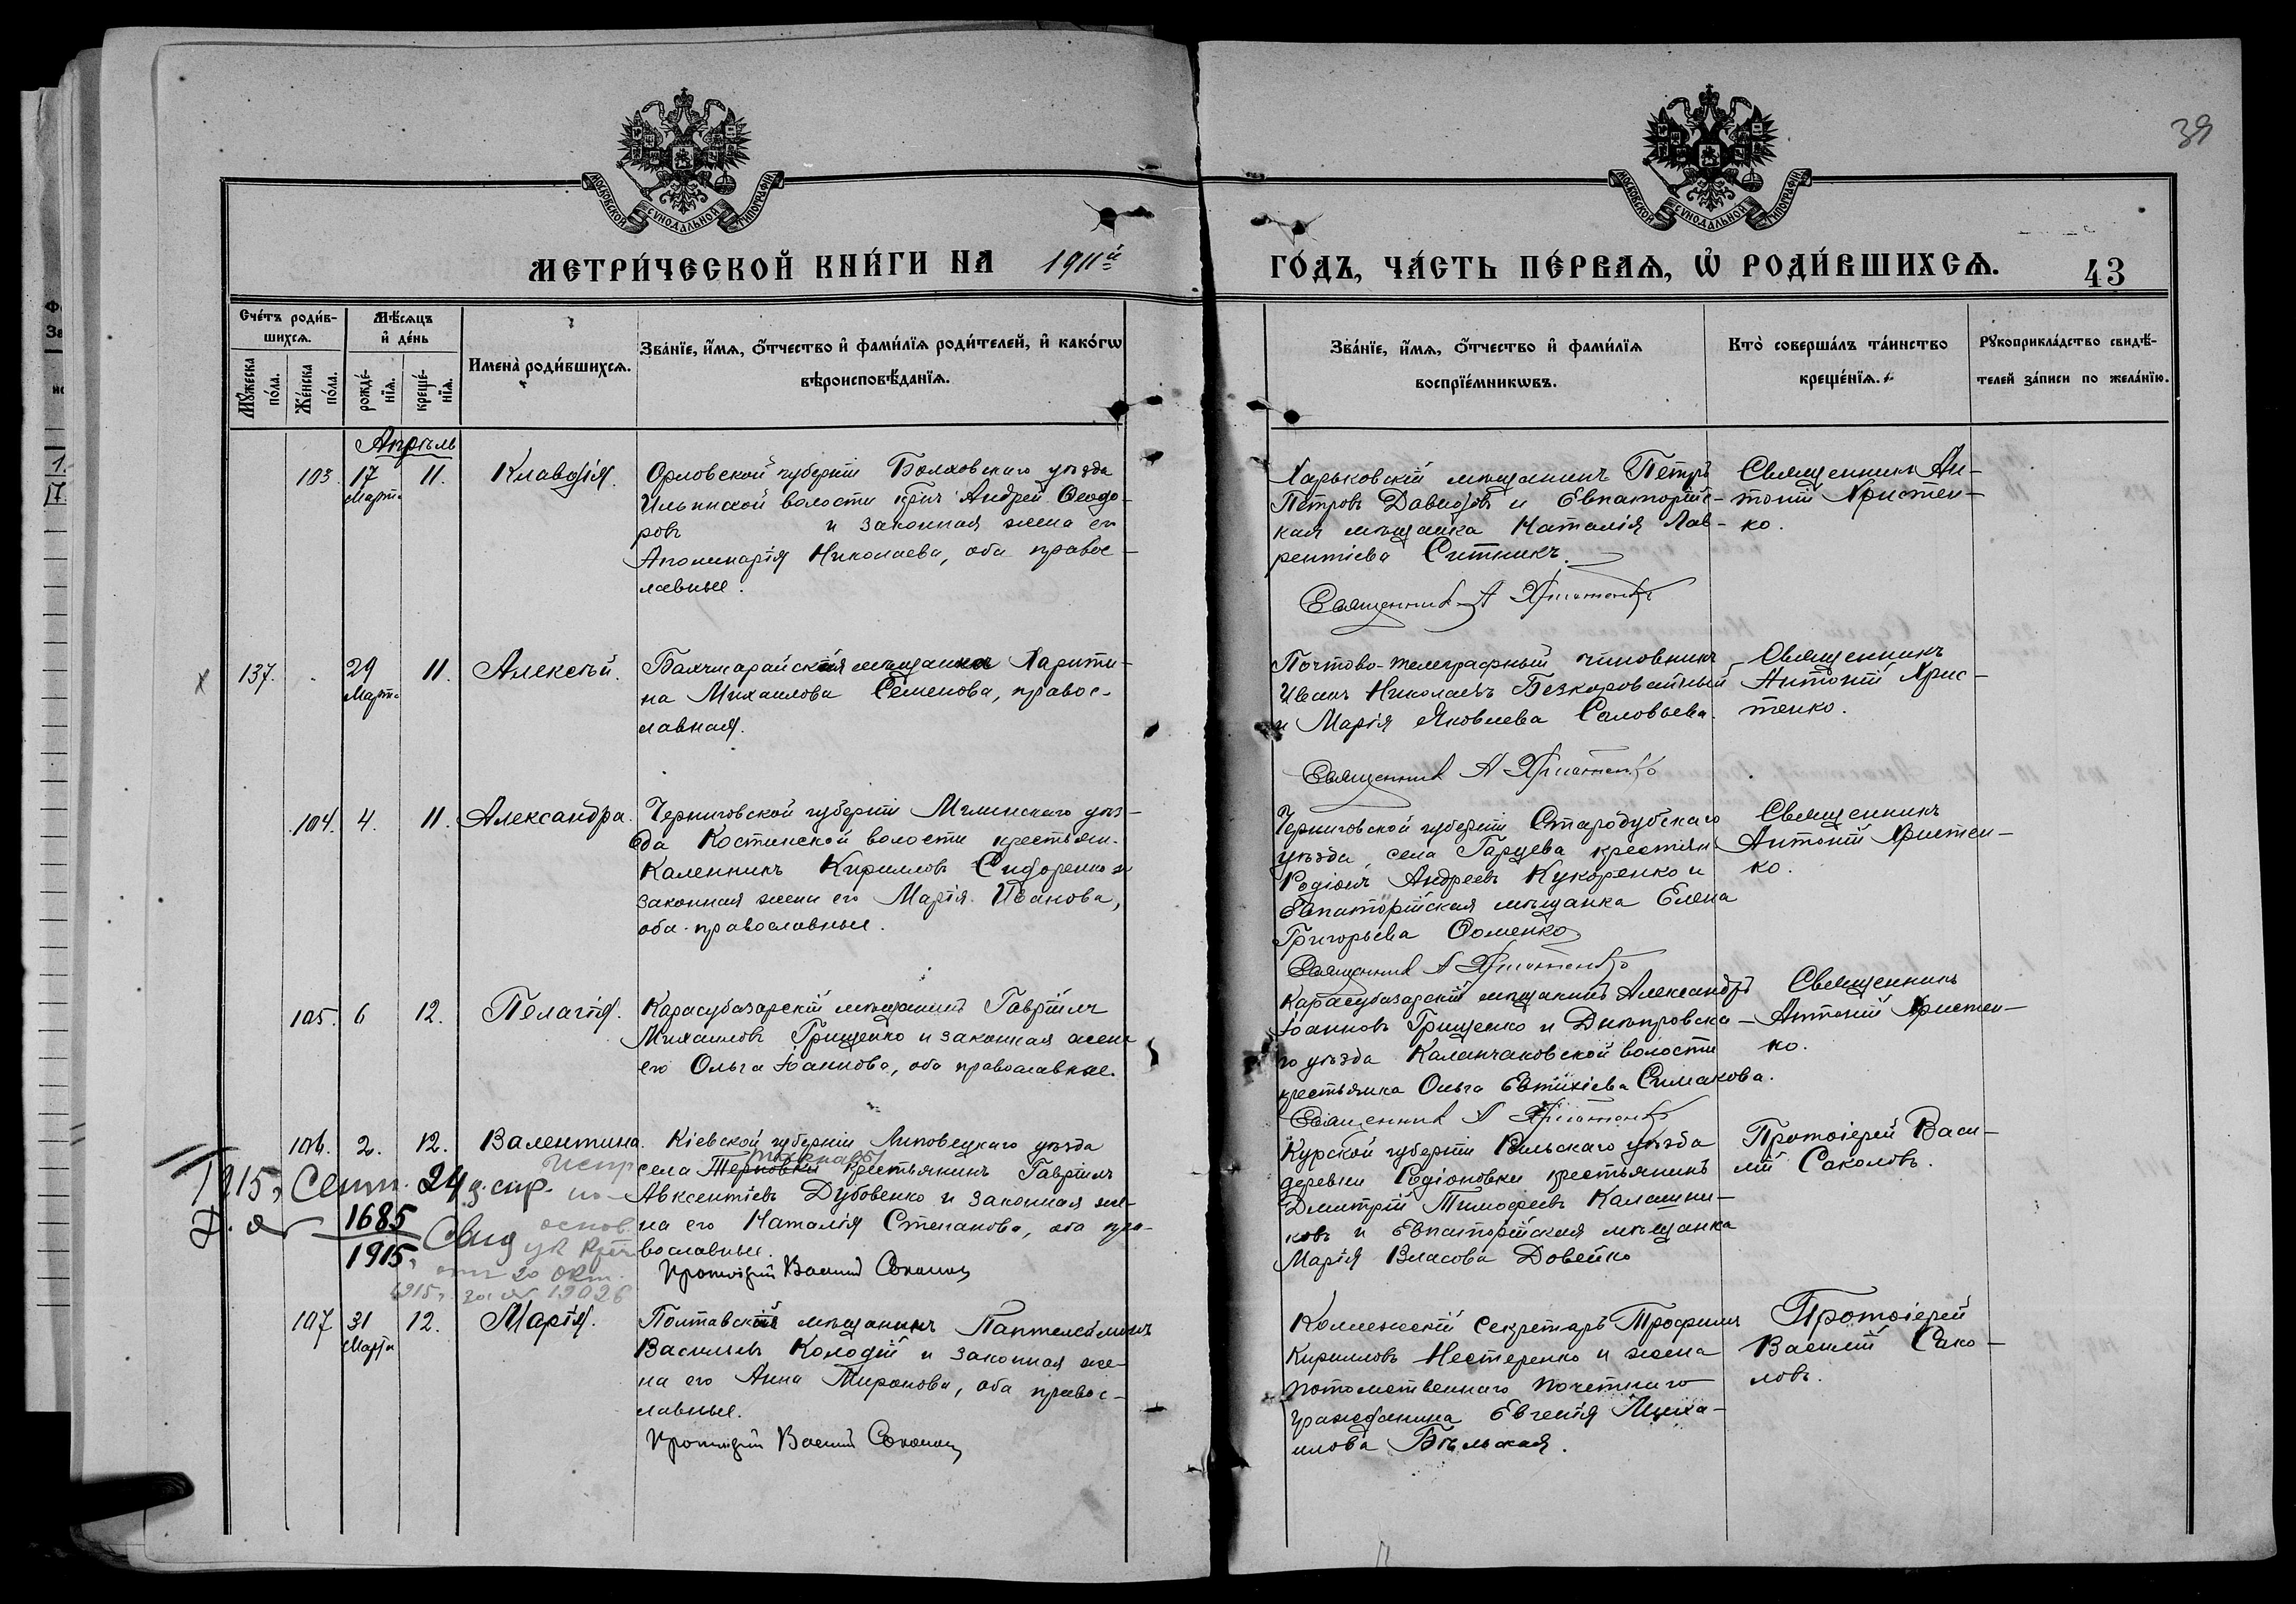 39
МОСКОВСКОЙ СѴНОДАЛЬНОЙ ТИПОГРАФІИ
МОСКОВСКОЙ СѴНОДАЛЬНОЙ ТИПОГРАФІИ
МЕТРИ́ЧЕСКОЙ КНИ́ГИ НА 1911й
ГО́ДЪ, ЧА́СТЬ ПЕ́РВАѦ, Ѡ РОДИ́ВШИХСѦ.
43
Сче́тъ роди́в-
шихсѧ.
Мꙋжеска по́ла.
Же́нска по́ла.
Мѣ́сѧцъ
и де́нь
рожде́-
нїѧ.
креще́-
нїѧ.
Имена̀ роди́вшихсѧ.
Зва́нїе, и́мѧ, ѻ́тчество и фами́лїѧ роди́телей, и како́гѡ
вѣроисповѣ́данїѧ.
Зва́нїе, и́мѧ, ѻ́тчество и фами́лїѧ
воспрїе́мникѡвъ.
Кто̀ соверша́лъ та́инство
креще́нїѧ.
Рꙋкоприкла́дство свидѣ́-
телей за́писи по жела́нїю.
Апрѣль
103. 17 Марта 11. Клавдія.
Орловской губерніи Болховскаго уѣзда
Ильинской волости кр-нъ Андрей Ѳеодо-
ровъ и законная жена его
Аполинарія Николаева, оба правос-
лавные.
Харьковскій мѣщанинъ Петръ
Петровъ Давидовъ и Евпаторійс-
кая мѣщанка Наталія Лав-
рентіева Ситникъ.
Священникъ А Христенко
Священникъ Ан-
тоній Христен-
ко.
137. 29 Марта 11. Алексѣй.
Бахчисарайская мѣщанка Харити-
на Михаилова Семенова, правос-
лавная.
Почтово-телеграфный чиновникъ
Иванъ Николаевъ Безкоровайный
и Марія Яковлева Соловьева.
Священникъ А Христенко
Священникъ
Антоній Хрис-
тенко.
104. 4. 11. Александра.
Черниговской губерніи Мглинскаго уѣз-
да Костинской волости крестьян.
Каленникъ Кирилловъ Сидоренко и
законная жена его Марія Иванова,
оба православные.
Черниговской губерніи Стародубскаго
уѣзда, села Гарцева крестьян.
Родіонъ Андреевъ Кукоренко и
Евпаторійская мѣщанка Елена
Григорьева Ѳоменко
Священникъ А Христенко
Священникъ
Антоній Христен-
ко.
105. 6 12. Пелагія.
Карасубазарскій мѣщанинъ Гавріилъ
Михаиловъ Грищенко и законная жена
его Ольга Іоаннова, оба православные.
Карасубазарскій мѣщанинъ Александръ
Іоанновъ Грищенко и Днѣпровска-
го уѣзда Каланчаковской волости
крестьянка Ольга Евтихіева Симакова.
Священникъ А Христенко
Священникъ
Антоній Христен-
ко.
106. 2. 12. Валентина.
Кіевской губерніи Липовецкаго уѣзда
села Терновки крестьянинъ Гавріилъ
Авксентіевъ Дубовенко и законная же-
на его Наталія Степанова, оба пра-
вославные.
Протоіерей Василій Соколовъ
1915 г. Сент. 24 д. спр.
Д. №
1685
1915 г.
испр. по
основ.
от 20 окт.
1915 г. за № 19026
Курской губерніи Рыльскаго уѣзда
деревни Родіоновки крестьянинъ
Димитрій Тимоѳеевъ Калашни-
ковъ и Евпаторійская мѣщанка
Марія Власова Довейко
Протоіерей Васи-
лій Соколовъ.
107 31 Марта 12. Марія.
Полтавскій мѣщанинъ Пантелеимонъ
Васильевъ Колодій и законная же-
на его Анна Миронова, оба правос-
лавные.
Протоіерей Василій Соколовъ
Коллежскій Секретарь Трофимъ
Кирилловъ Нестеренко и жена
потомственнаго почетнаго
гражданина Евгенія Миха-
илова Бѣльская.
Протоіерей
Василій Соко-
ловъ.